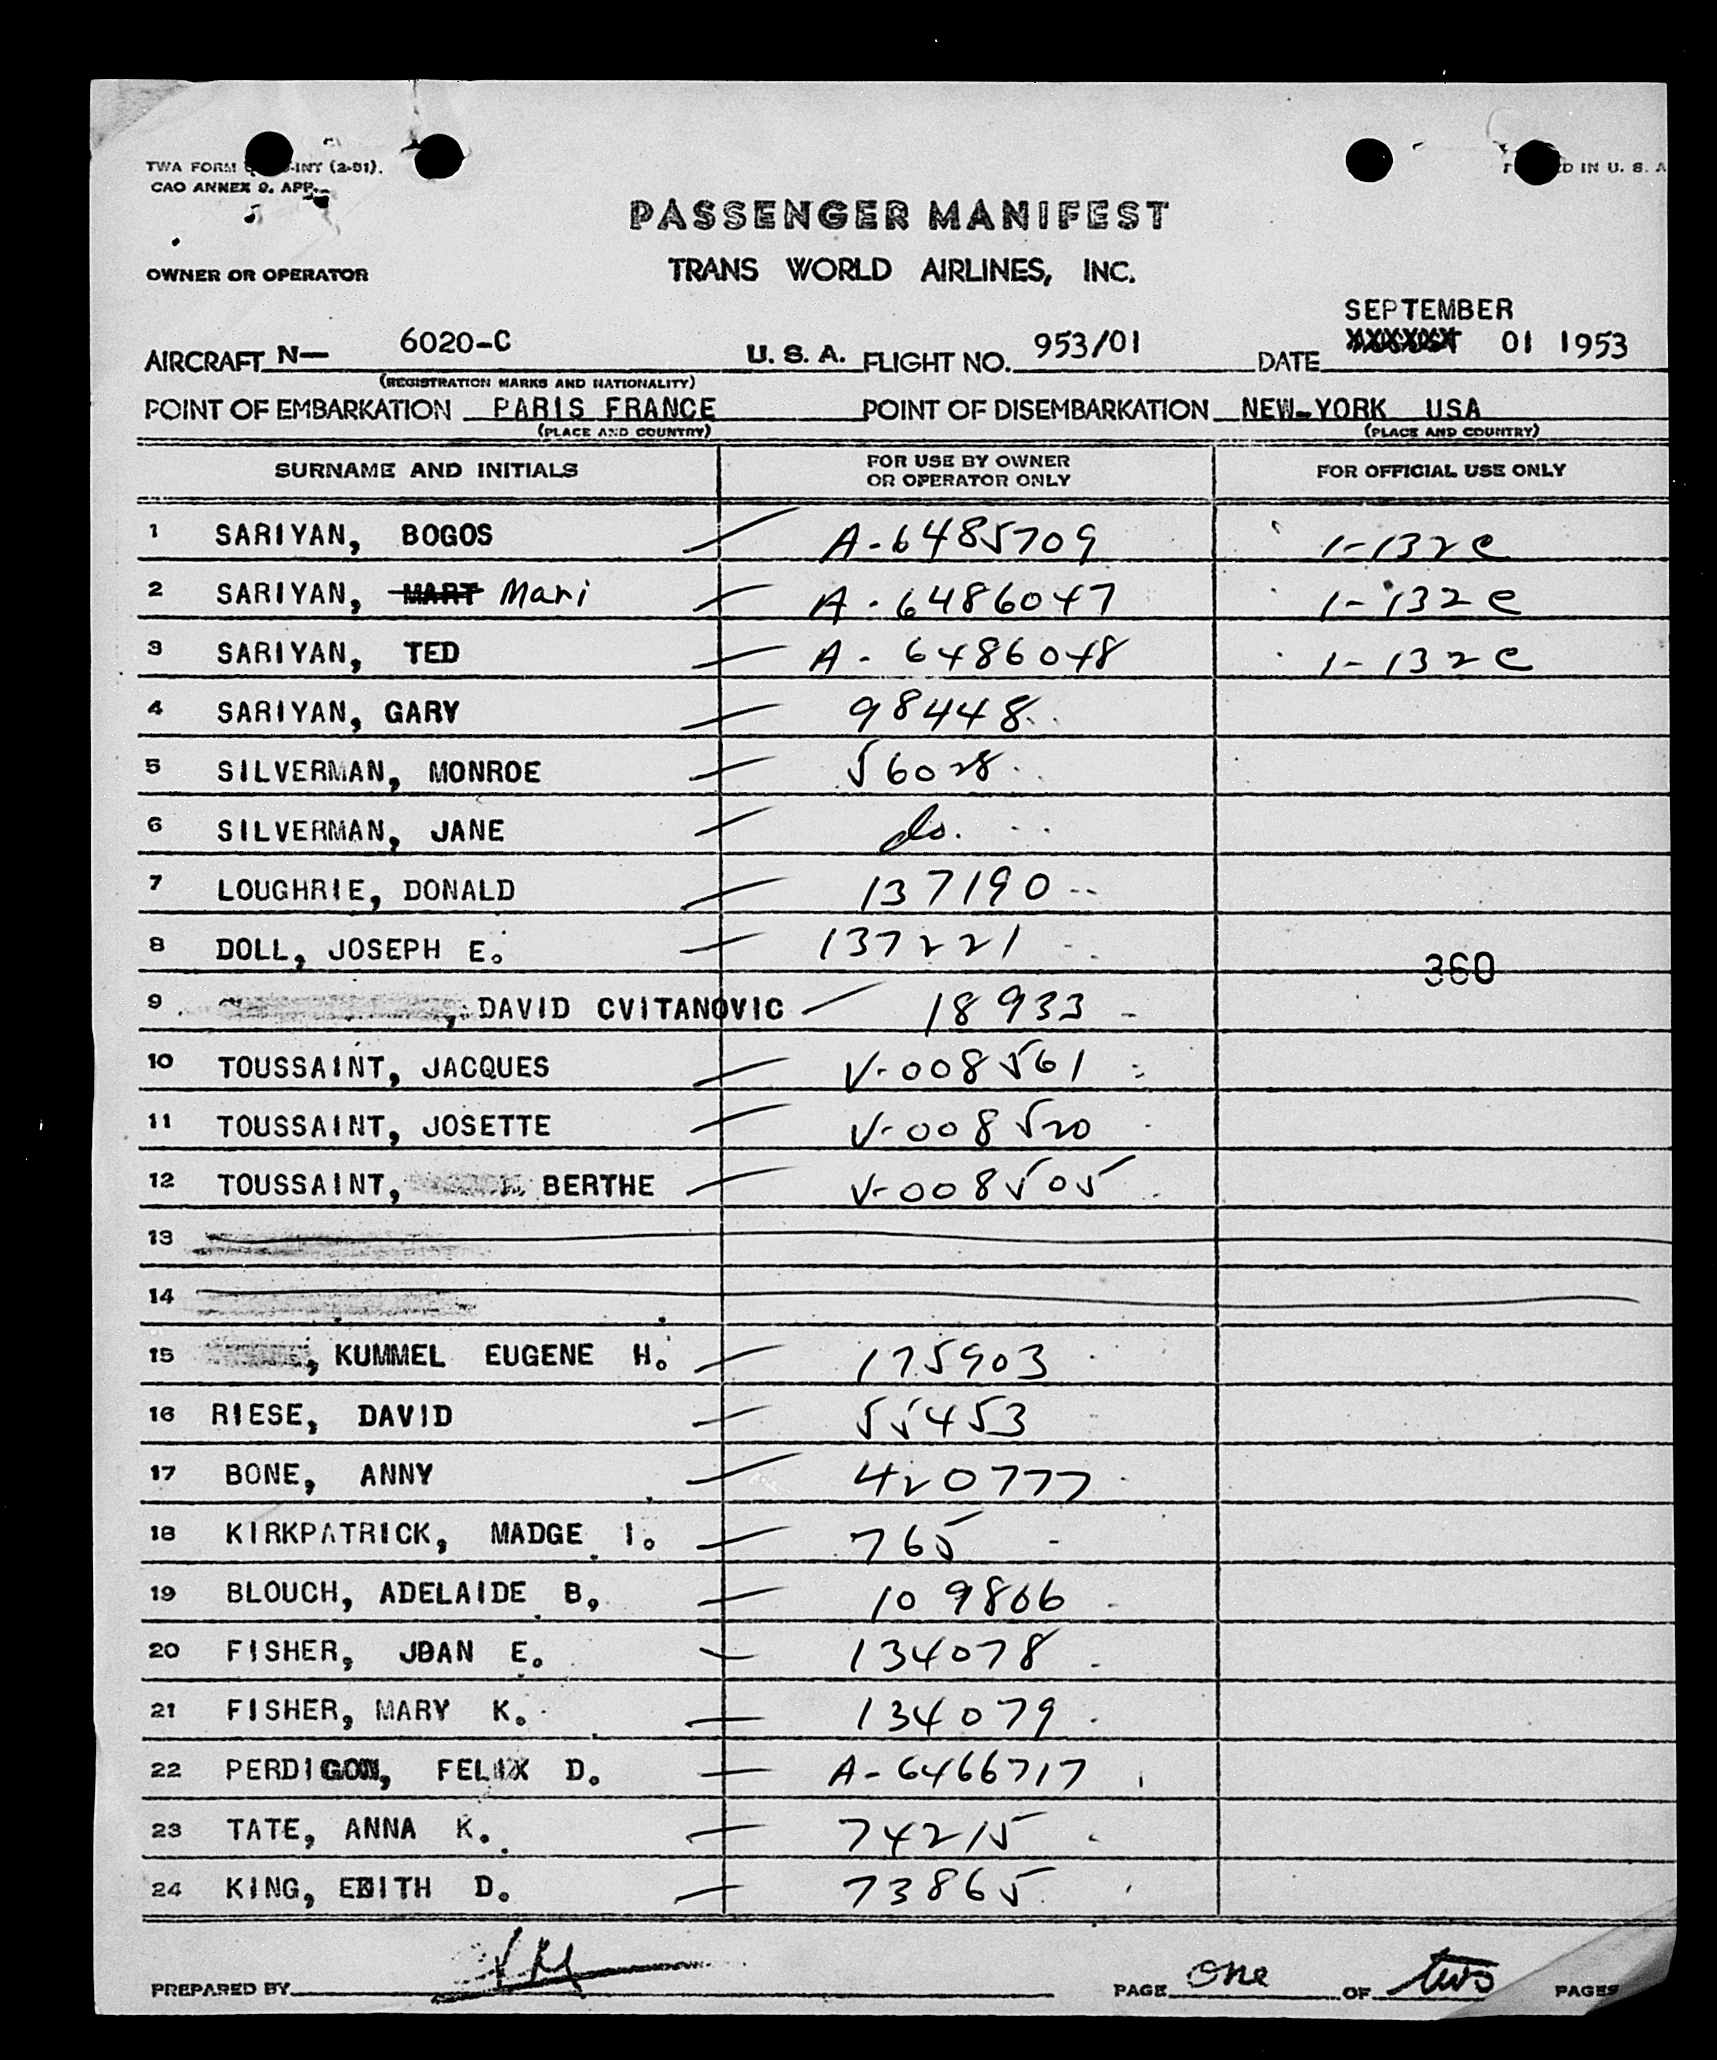 TWA FORM -INT (2-51).
CAO ANNEX 9. APP.
D IN U. S. A
PASSENGER MANIFEST
OWNER OR OPERATOR TRANS WORLD AIRLINES, INC.
SEPTEMBER
AIRCRAFT N— 6020-C U. S. A. FLIGHT NO. 953/01 DATE 01 1953
(REGISTRATION MARKS AND NATIONALITY)
POINT OF EMBARKATION PARIS FRANCE POINT OF DISEMBARKATION NEW-YORK USA
(PLACE AND COUNTRY) (PLACE AND COUNTRY)
SURNAME AND INITIALS FOR USE BY OWNER OR OPERATOR ONLY FOR OFFICIAL USE ONLY
1 SARIYAN, BOGOS A-6485709 1-132e
2 SARIYAN, MART Mari A-6486047 1-132e
3 SARIYAN, TED A-6486048 1-132e
4 SARIYAN, GARY 98448
5 SILVERMAN, MONROE 56028
6 SILVERMAN, JANE do.
7 LOUGHRIE, DONALD 137190
8 DOLL, JOSEPH E. 137221
360
9 , DAVID CVITANOVIC 18933
10 TOUSSAINT, JACQUES V-008561
11 TOUSSAINT, JOSETTE V-008520
12 TOUSSAINT, BERTHE V-008505
13
14
15 , KUMMEL EUGENE H. 175903
16 RIESE, DAVID 55453
17 BONE, ANNY 420777
18 KIRKPATRICK, MADGE I. 765
19 BLOUCH, ADELAIDE B, 109866
20 FISHER, JOAN E. 134078
21 FISHER, MARY K. 134079
22 PERDIGON, FELIX D. A-6466717
23 TATE, ANNA K. 74215
24 KING, EDITH D. 73865
PREPARED BY PAGE one OF two PAGES